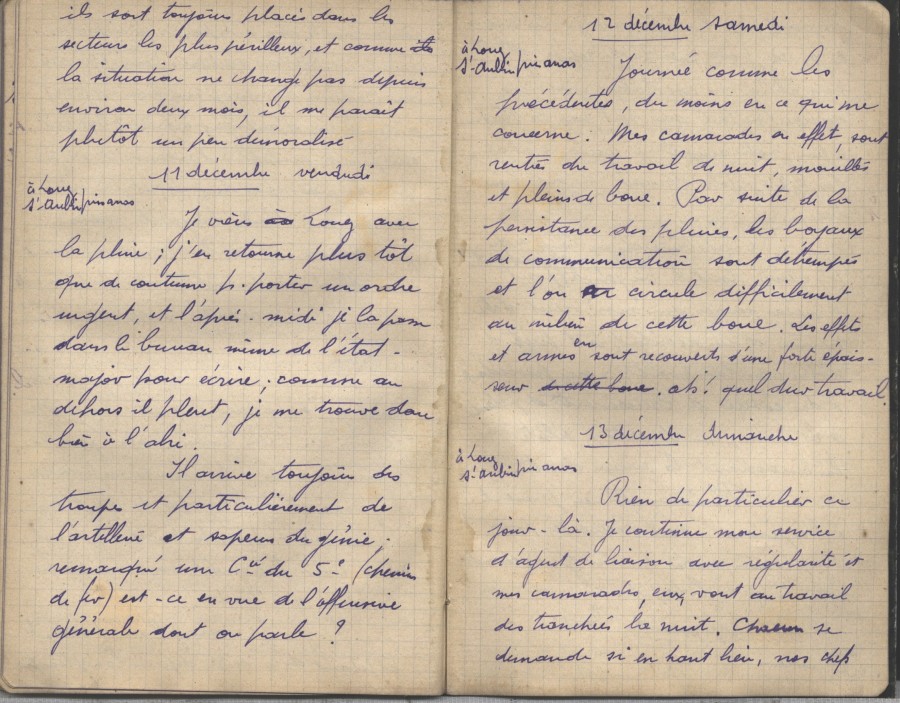 ils sont toujours placés dans les
secteurs les plus périlleux, et comme
la situation ne change pas depuis
environ deux mois, il me paraît
plutôt un peu démoralisé
11 décembre vendredi
à Louez
St-Aubin près anas
Je viens à Louez avec
la pluie ; j'en retourne plus tôt
que de coutume p. porter un ordre
urgent, et l'après-midi je la passe
dans le bureau même de l'état-
major pour écrire ; comme au
dehors il pleut, je me trouve donc
bien à l'abri.
Il arrive toujours des
troupes et particulièrement de
l'artillerie et sapeurs du génie ;
remarqué une Cie du 5e (chemin
de fer) est-ce en vue de l'offensive
générale dont on parle ?
12 décembre samedi
à Louez
St-Aubin près anas
Journée comme les
précédentes, du moins en ce qui me
concerne. Mes camarades en effet, sont
rentrés du travail de nuit, mouillés
et pleins de boue. Par suite de la
persistance des pluies, les boyaux
de communication sont détrempés
et l'on circule difficilement
au milieu de cette boue. Les effets
et armes en sont recouverts d'une forte épais-
seur de cette boue. ah ! quel dur travail.
13 décembre dimanche
à Louez
St-Aubin près anas
Rien de particulier ce
jour-là. Je continue mon service
d'agent de liaison avec régularité et
mes camarades, eux, vont au travail
des tranchées la nuit. Chacun se
demande si en haut lieu, nos chefs